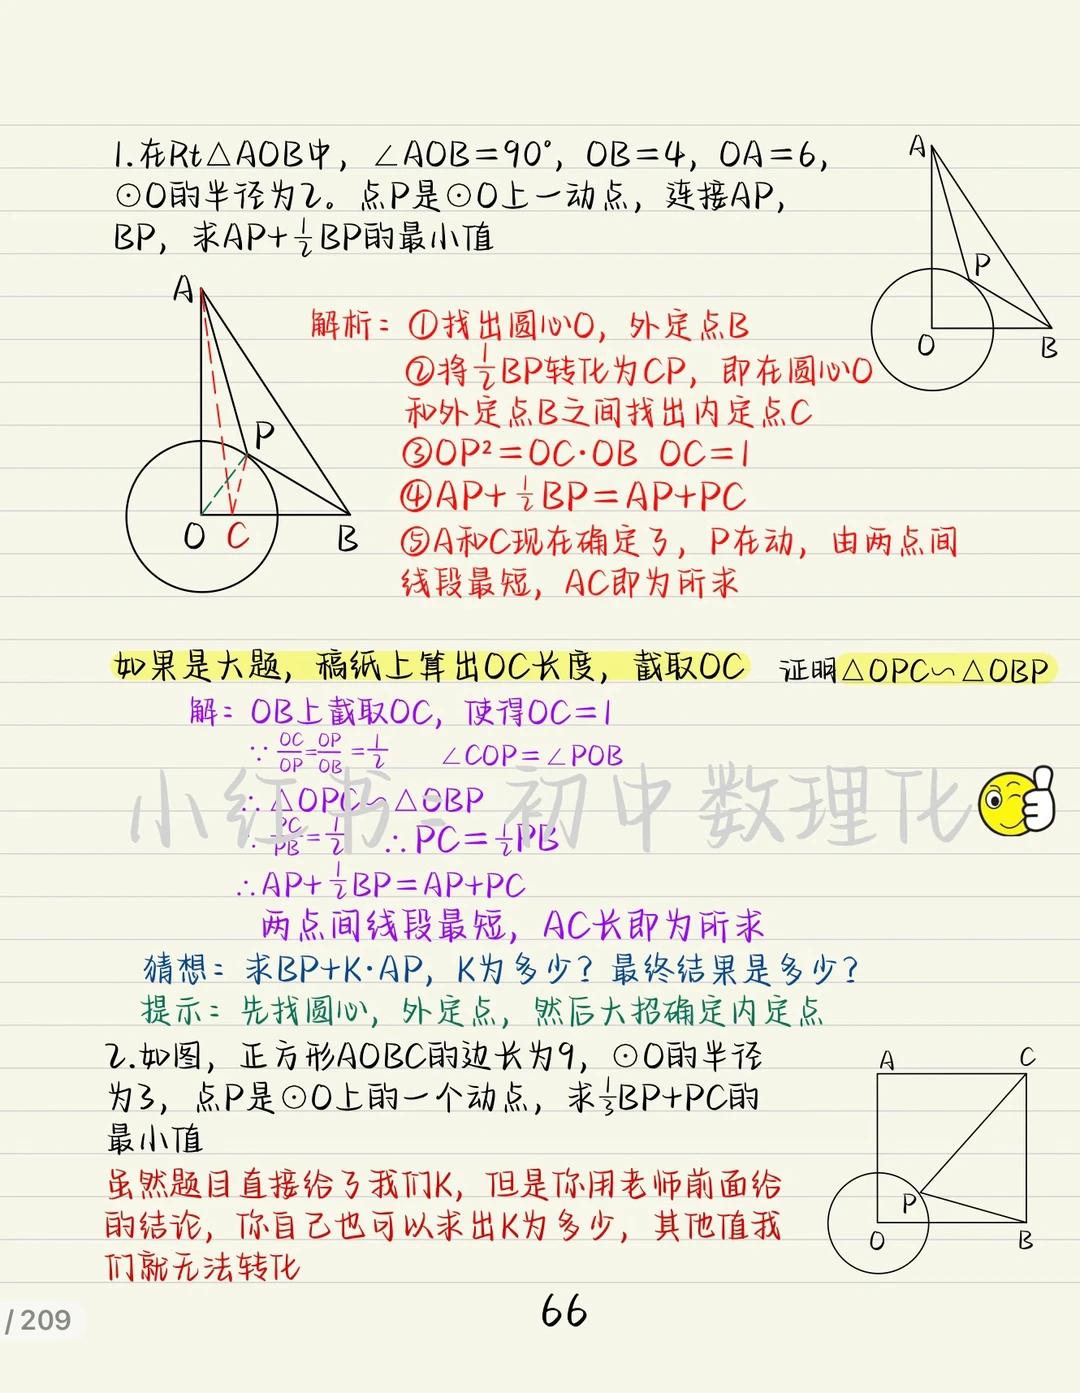 1.在Rt△AOB中，∠AOB=90°，OB=4，OA=6，
⊙O的半径为2。点P是⊙O上一动点，连接AP，
BP，求AP+1/2BP的最小值
A
P
O
B
A
P
O
C
B
解析：①找出圆心O，外定点B
②将1/2BP转化为CP，即在圆心O
和外定点B之间找出内定点C
③OP²=OC·OB OC=1
④AP+1/2BP=AP+PC
⑤A和C现在确定了，P在动，由两点间
线段最短，AC即为所求
如果是大题，稿纸上算出OC长度，截取OC 证明△OPC∽△OBP
解：OB上截取OC，使得OC=1
∵OC/OP=OP/OB=1/2 ∠COP=∠POB
∴△OPC∽△OBP
∴PC/PB=1/2 ∴PC=1/2PB
∴AP+1/2BP=AP+PC
两点间线段最短，AC长即为所求
小红书：初中数理化
猜想：求BP+K·AP，K为多少？最终结果是多少？
提示：先找圆心，外定点，然后大招确定内定点
2.如图，正方形AOBC的边长为9，⊙O的半径
为3，点P是⊙O上的一个动点，求1/3BP+PC的
最小值
A
C
P
O
B
虽然题目直接给了我们K，但是你用老师前面给
的结论，你自己也可以求出K为多少，其他值我
们就无法转化
66
/ 209